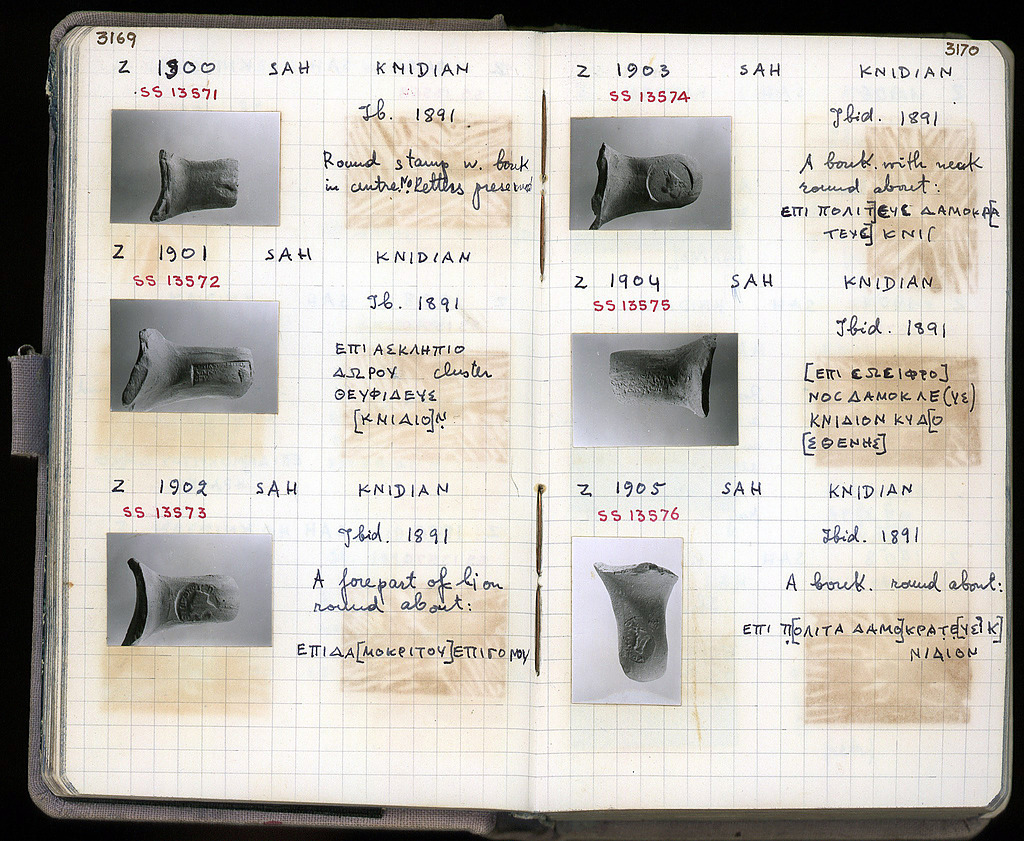 3169
Z 1900 SAH KNIDIAN
SS 13571
Ib. 1891
Round stamp w. bouk
in centre. No letters preserved
Z 1901 SAH KNIDIAN
SS 13572
Ib. 1891
ΕΠΙ ΑΣΚΛΗΠΙΟ
ΔΩΡΟΥ cluster
ΘΕΥΦΙΔΕΥΣ
[ΚΝΙΔΙΟ]Ν
Z 1902 SAH KNIDIAN
SS 13573
Ibid. 1891
A forepart of lion
round about:
ΕΠΙΔΑ[ΜΟΚΡΙΤΟΥ]ΕΠΙΓΟΝΟΥ
3170
Z 1903 SAH KNIDIAN
SS 13574
Ibid. 1891
A bouk. with neck
round about:
ΕΠΙ ΠΟΛΙΤ]ΕΥϹ ΔΑΜΟΚΡΑ[
ΤΕΥϹ] ΚΝΙ
Z 1904 SAH KNIDIAN
SS 13575
Ibid. 1891
[ΕΠΙ ΣΩΣΙΦΡΟ]
ΝΟΣ ΔΑΜΟΚΛΕ(ΥΣ)
ΚΝΙΔΙΟΝ ΚΥΔ[Ο
[ΣΘΕΝΗΣ]
Z 1905 SAH KNIDIAN
SS 13576
Ibid. 1891
A bouk. round about:
ΕΠΙ Π[ΟΛΙΤΑ ΔΑΜΟ]ΚΡΑΤΕ[ΥΣ] Κ]
ΝΙΔΙΟΝ